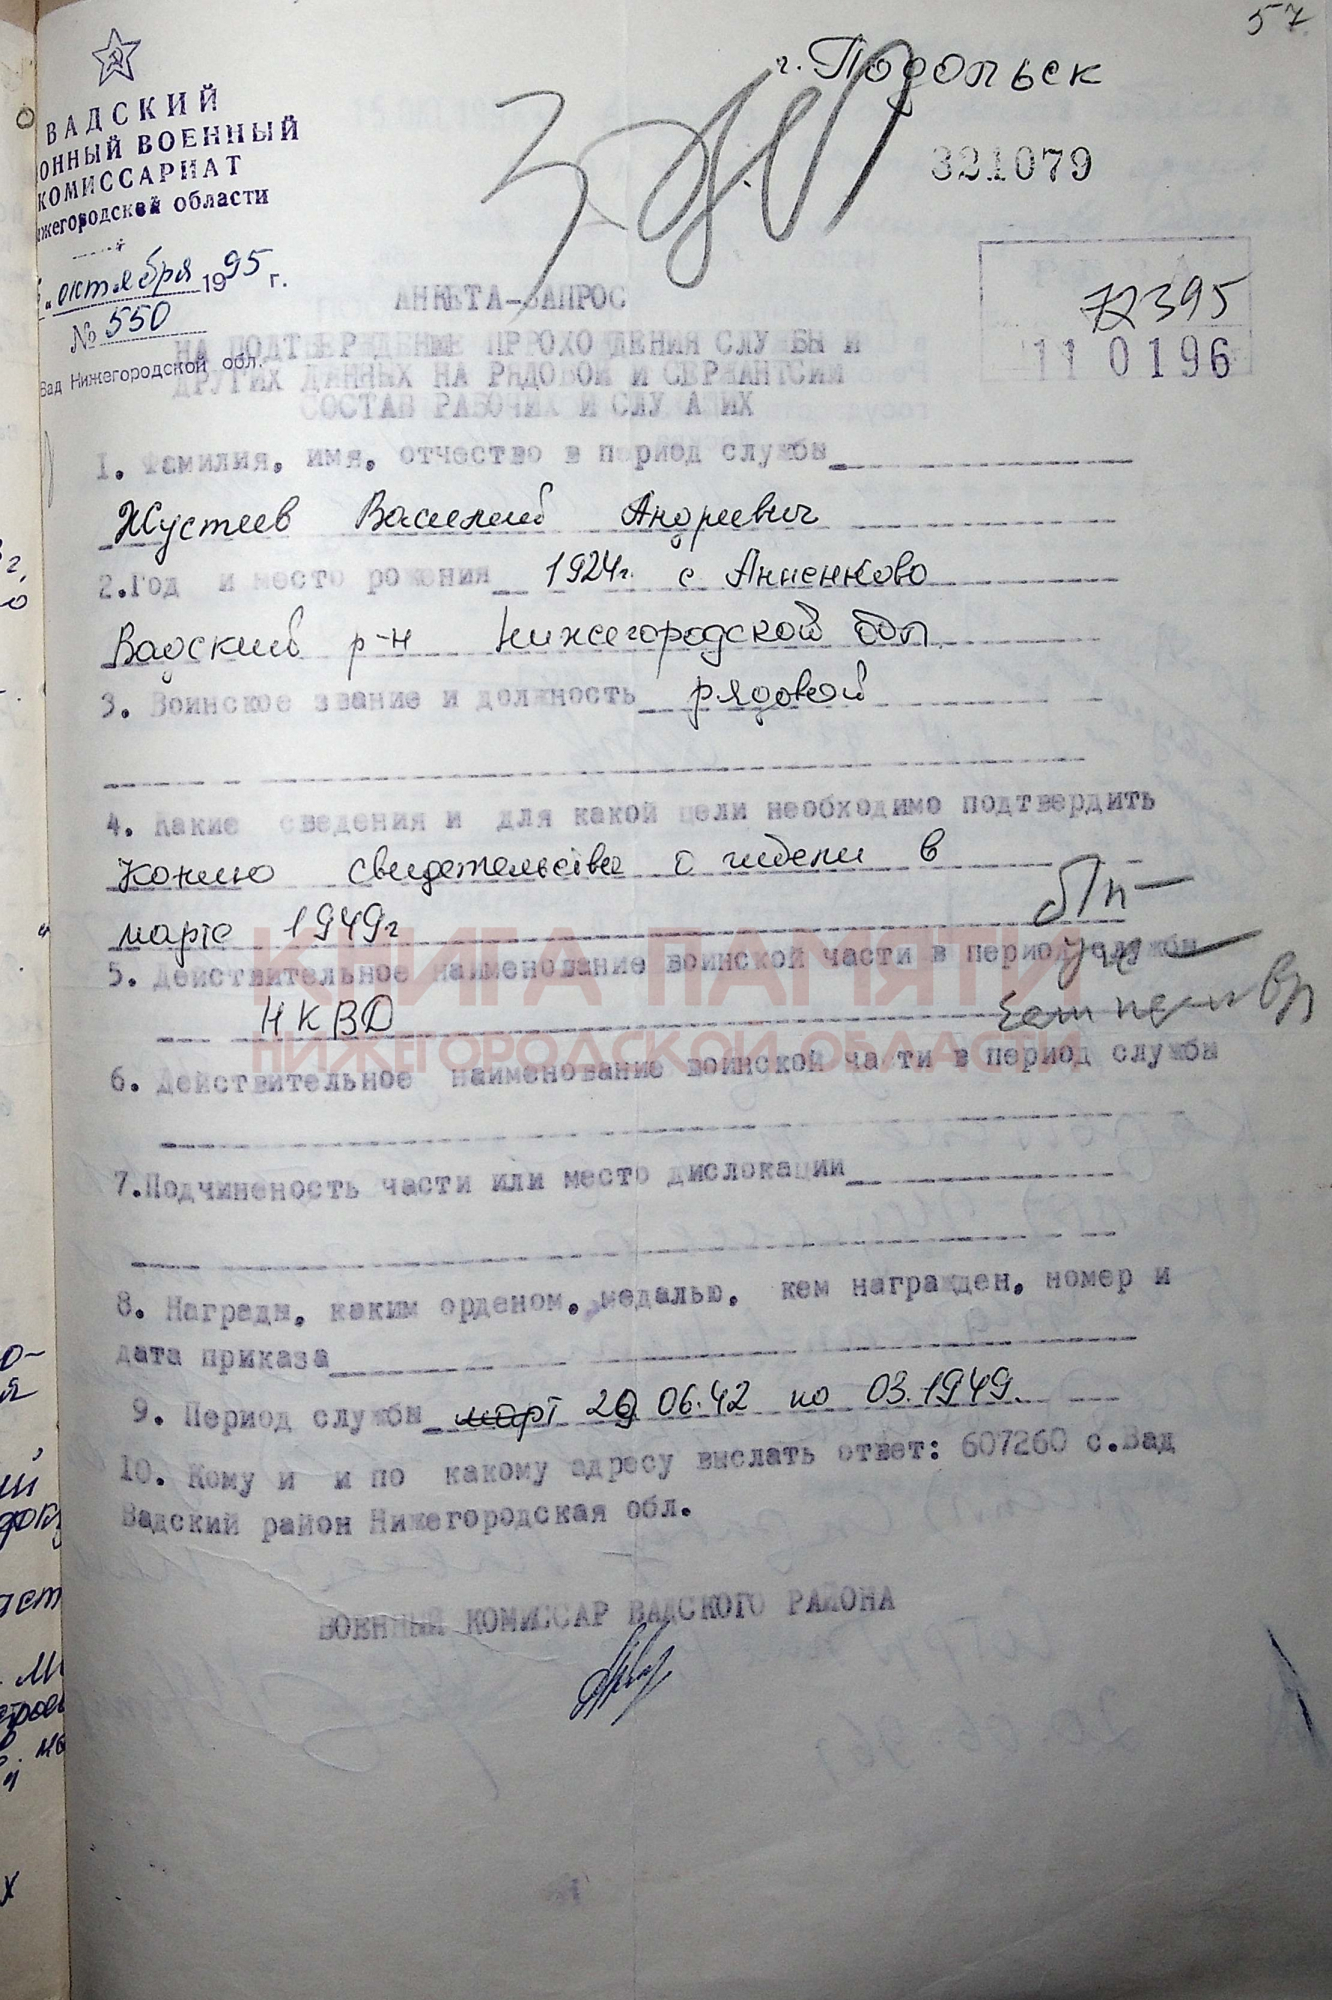 57.
ВАДСКИЙ
ОННЫЙ ВОЕННЫЙ
КОМИССАРИАТ
ижегородской области
октября 1995 г.
№ 550
Вад Нижегородской обл.
г. Подольск
321079
72395
11 0196
АНКЕТА-ЗАПРОС
НА ПОДТВЕРЖДЕНИЕ ПРРОХОЖДЕНИЯ СЛУЖБЫ И
ДРУГИХ ДАННЫХ НА РЯДОВОЙ И СЕРЖАНТСИЙ
СОСТАВ РАБОЧИХ И СЛУЖАЩИХ
1. Фамилия, имя, отчество в период службы
Жустеев Василий Андреевич
2.Год и место рожения 1924г. с Анненково
Вадский р-н Нижегородской обл.
3. Воинское звание и должность рядовой
4. Какие сведения и для какой цели необходимо подтвердить
Копию свидетельства о гибели в
марте 1949г
5. Действительное наименование воинской части в период службы
НКВД
6. Действительное наименование воинской части в период службы
7.Подчиненость части или место дислокации
8. Награды, каким орденом, медалью, кем награжден, номер и
дата приказа
9. Период службы март 29 06.42 по 03.1949.
10. Кому и и по какому адресу выслать ответ: 607260 с.Вад
Вадский район Нижегородская обл.
ВОЕННЫЙ КОМИССАР ВАДСКОГО РАЙОНА
КНИГА ПАМЯТИ
НИЖЕГОРОДСКОЙ ОБЛАСТИ